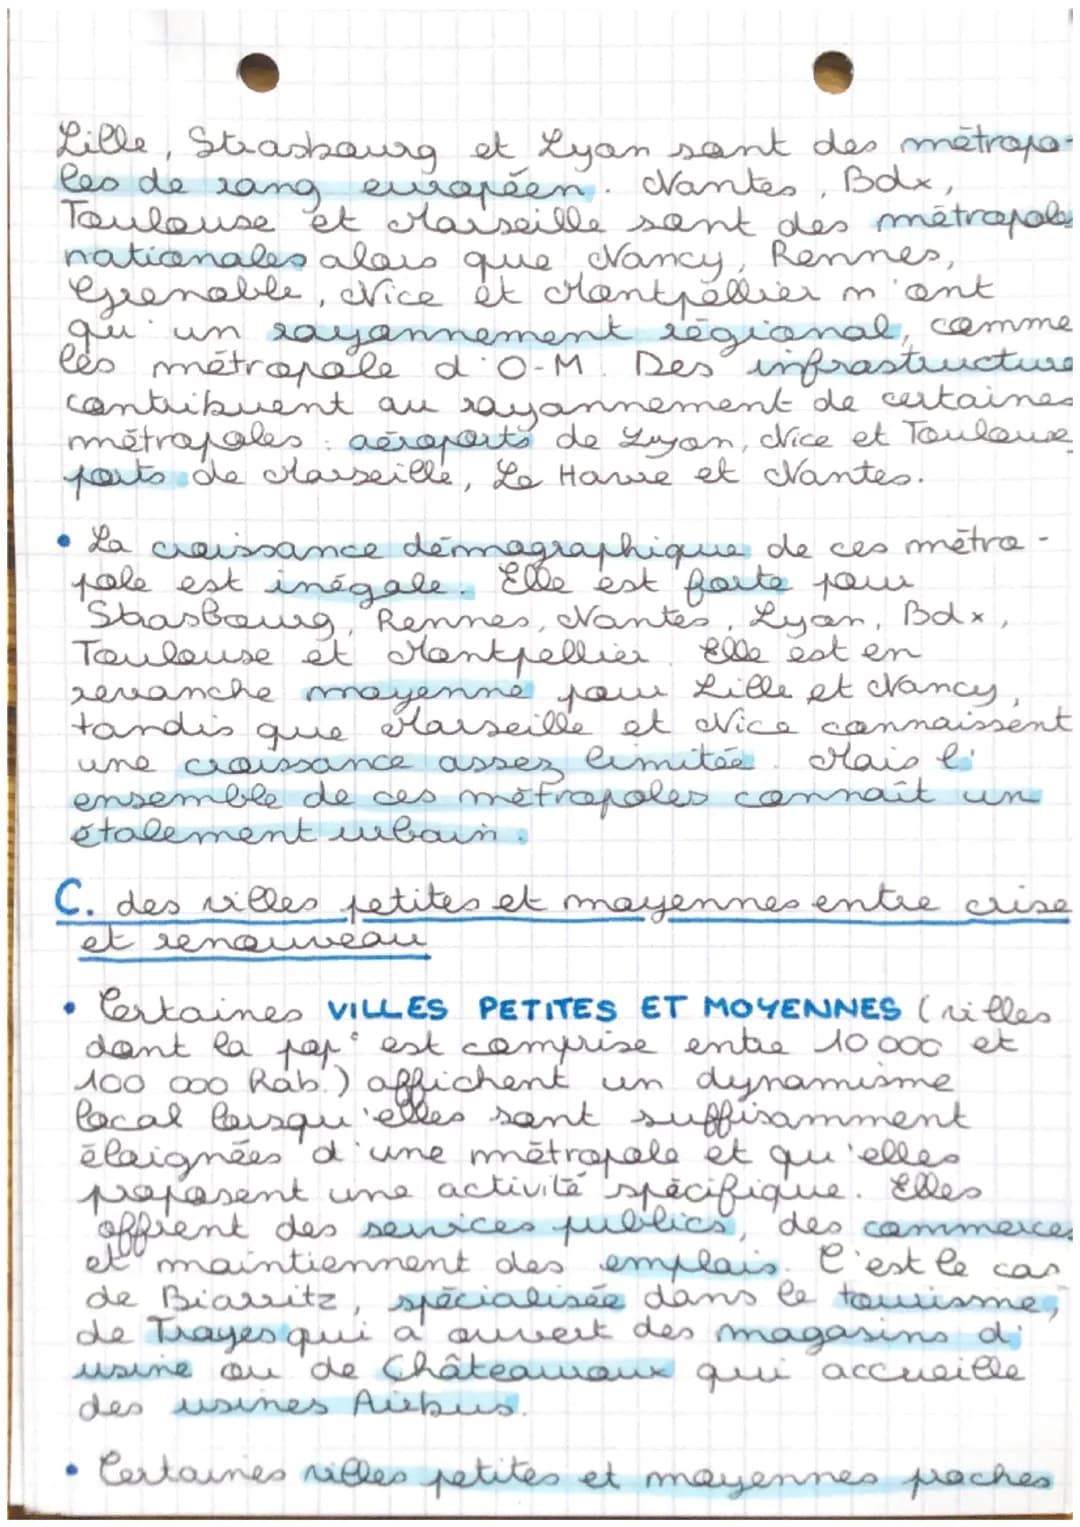 Lille, Strasbourg et Lyon sont des métropo-
les de rang européen. Nantes, Bdx,
Toulouse et Marseille sont des métropoles
nationales alors que Nancy, Rennes,
Grenoble, Nice et Montpellier n'ont
qu'un rayonnement régional, comme
les métropole d'O-M. Des infrastructure
contribuent au rayonnement de certaines
métropoles : aéroports de Lyon, Nice et Toulouse
ports de Marseille, Le Havre et Nantes.
• La croissance démographique de ces métro-
pole est inégale. Elle est forte pour
Strasbourg, Rennes, Nantes, Lyon, Bdx,
Toulouse et Montpellier. Elle est en
revanche moyenne pour Lille et Nancy,
tandis que Marseille et Nice connaissent
une croissance assez limitée. Mais l'
ensemble de ces métropoles connaît un
étalement urbain.
C. des villes petites et moyennes entre crise
et renouveau
• Certaines VILLES PETITES ET MOYENNES (villes
dont la pop° est comprise entre 10 000 et
100 000 hab.) affichent un dynamisme
local lorsqu'elles sont suffisamment
éloignées d'une métropole et qu'elles
proposent une activité spécifique. Elles
offrent des services publics, des commerces
et maintiennent des emplois. C'est le cas
de Biarritz, spécialisée dans le tourisme,
de Troyes qui a ouvert des magasins d'
usine ou de Châteauroux qui accueille
des usines Airbus.
• Certaines villes petites et moyennes proches